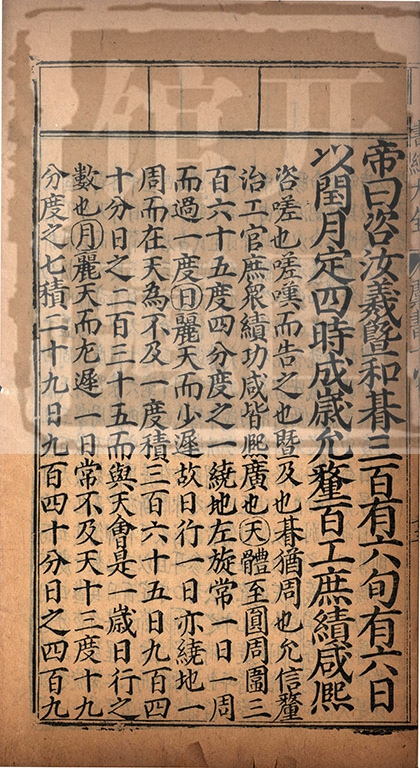 帝曰咨汝羲曁和朞三百有六旬有六日
以閏月定四時成歲允釐百工庶績咸熙
咨嗟也嗟嘆而告之也曁及也朞猶周也允信釐
治工官庶衆績功咸皆熙廣也天體至圓周圍三
百六十五度四分度之一繞地左旋常一日一周
而過一度日麗天而少遲故日行一日亦繞地一
周而在天為不及一度積三百六十五日九百四
十分日之二百三十五而與天會是一歲日行之
數也月麗天而尤遲一日常不及天十三度十九
分度之七積二十九日九百四十分日之四百九